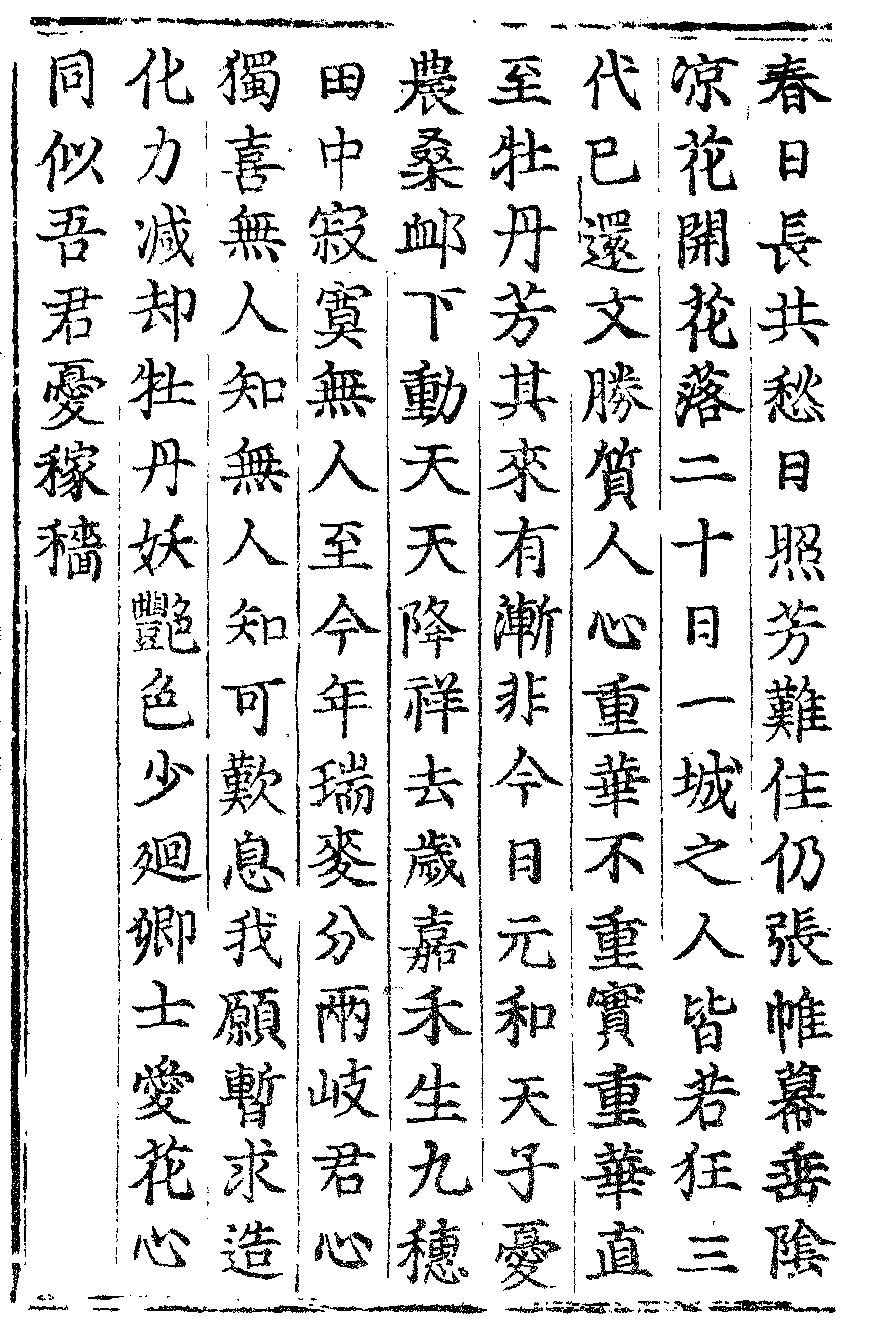 春日長共愁日照芳難住仍張帷幕垂陰
凉花開花落二十日一城之人皆若狂三
代已還文勝質人心重華不重實重華直
至牡丹芳其來有漸非今日元和天子憂
農桑衈下動天天降祥去歲嘉禾生九穗
田中寂寞無人至今年瑞麥分兩岐君心
獨喜無人知無人知可歎息我願暫求造
化力减却牡丹妖豔色少廻卿士愛花心
同似吾君憂稼穡